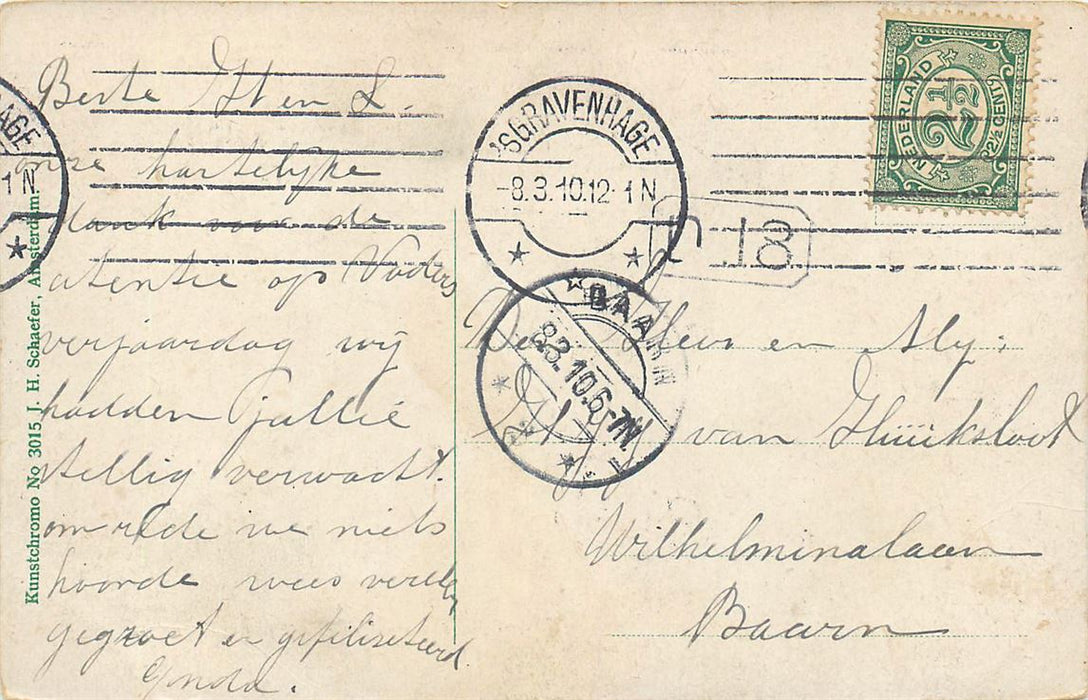 Beste H en L.
onze hartelijke
dank voor de
atentie op Vaders
verjaardag wij
hadden jullie
stellig verwacht.
omrede we niets
hoorde wees verder
gegroet en gefiliseteerd
Kunstchromo No 3015 J. H. Schaefer, Amsterdam
'SGRAVENHAGE
-8.3.10.12-1N
BAARN
8.3.10.6-7N
NEDERLAND
2½
2½ CENT
18
De Heer en Mej:
van
Wilhelminalaan
Baarn